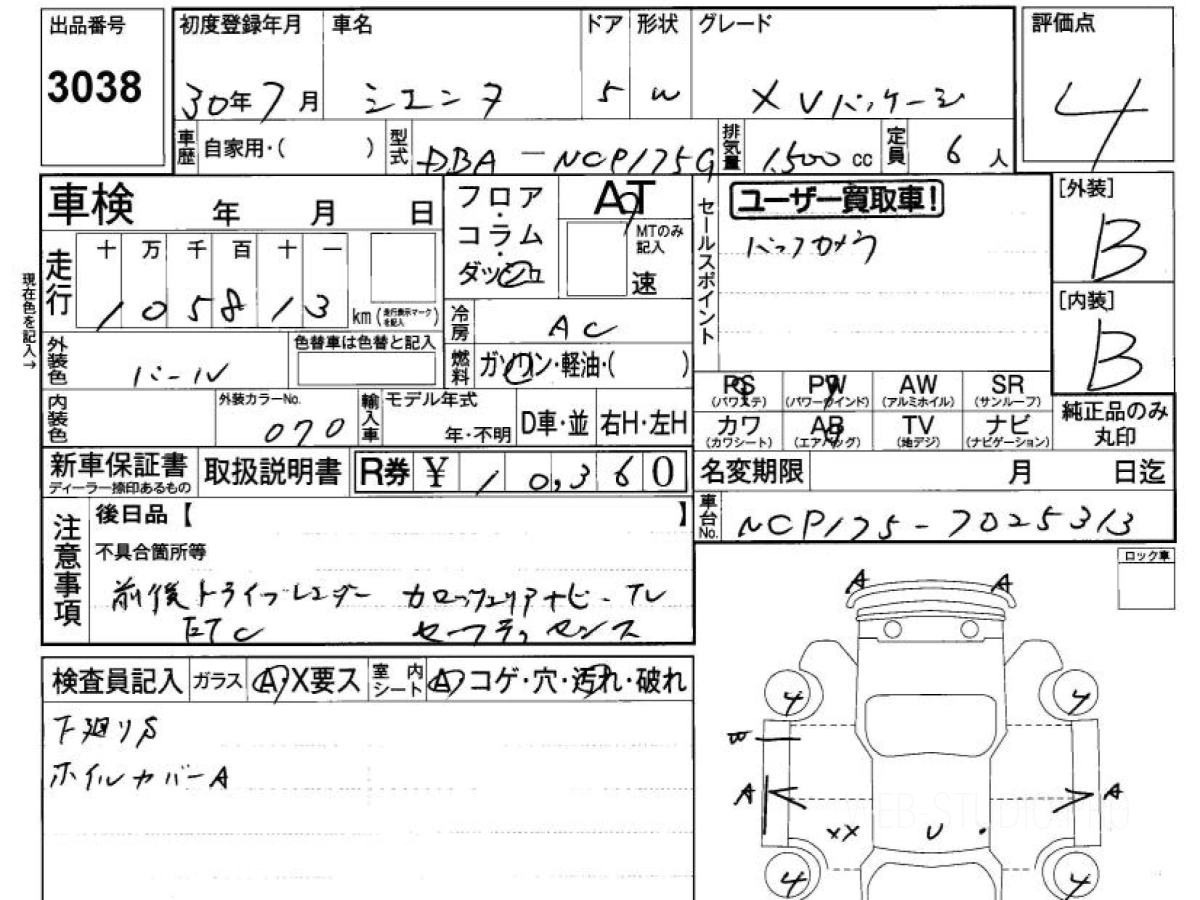 出品番号 初度登録年月 車名 ドア 形状 グレード 評価点
3038 30年7月 シエンタ 5 W X Vパッケージ 4
車歴 自家用・( ) 型式 DBA-NCP175G 排気量 1,500 cc 定員 6 人
車検 年 月 日
フロア・コラム・ダッシュ
AT
MTのみ記入
速
セールスポイント
ユーザー買取車!
バックカメラ
[外装]
B
[内装]
B
現在色を記入→
走行 十 万 千 百 十 一
105813 km (走行表示マークを記入)
冷房 AC
外装色 パール 色替車は色替と記入
燃料 ガソリン・軽油・( )
内装色 外装カラーNo. 070
輸入車 モデル年式 年・不明 D車・並 右H・左H
PS (パワステ) PW (パワーウインド) AW (アルミホイル) SR (サンルーフ)
カワ (カワシート) AB (エアバッグ) TV (地デジ) ナビ (ナビゲーション)
純正品のみ丸印
新車保証書 ディーラー捺印あるもの 取扱説明書 R券 ¥ 10,360
名変期限 月 日迄
車台No. NCP175-7025313
注意事項
後日品【 】
不具合箇所等
前後ドライブレコーダー カロッツェリアナビ-TV
ETC セーフティセンス
ロック車
A A
検査員記入 ガラス A・X要ス 室内シート A コゲ・穴・汚れ・破れ
下廻りS
ホイルカバーA
4 4
W
A A
XX U
4 4
WEB-STUDIO.PRO